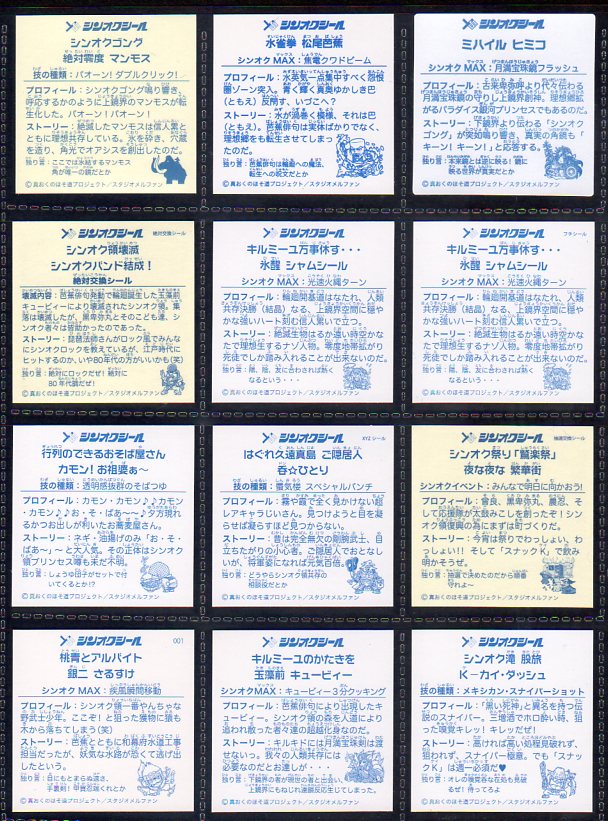 シンオクシール
シンオクゴング
絶対零度 マンモス
技の種類：パオーン！ダブルクリック！
プロフィール：シンオクゴング鳴り響き、
呼応するかのように上鏡界のマンモスが転
生化した。パオーン！パオーン！
ストーリー：絶滅したマンモスは信人累と
ともに理想共存している。氷を砕き、穴滅
を造り、角光でオアシスを創出したのだ。
独り言：ここでは氷結するマンモス
角が唯一の鏡だとか
©真おくのほそ道プロジェクト／スタジオメルファン
シンオクシール
水雀拳 松尾芭蕉
シンオクMAX：焦電クワドビーム
プロフィール：水英気一点集中すべく怨恨
圏ゾーン突入。青く輝く真奥ゆかしき巴
（ともえ）反閇す、いづこへ？
ストーリー：水が渦巻く模様、それは巴
（ともえ）。芭蕉俳句は実体ばかりでなく、
理想郷をも転生させてしまっ
たのだろうか。
独り言：芭蕉俳句は輪廻への魔法、
転生への呪文だとか
©真おくのほそ道プロジェクト／スタジオメルファン
シンオクシール
ミハイル ヒミコ
シンオクMAX：月満宝珠鏡フラッシュ
プロフィール：古来卑弥呼より代々伝わる
月満宝珠鏡の守りし上鏡界創神。理想郷拡
がるパラダイス銀河プリンセスでもあるのだ。
ストーリー：上鏡界より伝わる「シンオク
ゴング」が突如鳴り響き、真実の角鏡も「
キーン！キーン！」と応答する。
独り言：本来鏡とは逆に映る！鏡に
映る世界が真実だとか
©真おくのほそ道プロジェクト／スタジオメルファン
シンオクシール
絶対交換シール
シンオク領壊滅
シンオクバンド結成！
絶対交換シール
壊滅内容：芭蕉俳句発動で輪廻誕生した玉藻前
キュービィーにより壊滅されたシンオク領。集
落は壊滅したが、黒卑弥丸とそのこども達、シ
ンオク者々は皆助かったのであった。
ストーリー：琵琶法師さんがロック風でみん
なにシンオクロックを教えているが、江戸時代に
ヒットするのか、いいや80年代の方がいいかも（笑）
独り言：絶対にロックだぜ！絶対に
80年代調だぜ！
©真おくのほそ道プロジェクト／スタジオメルファン
シンオクシール
キルミーユ万事休す・・・
氷醒 シャムシール
シンオクMAX：光速火縄ターン
プロフィール：輪廻開基道はなたれ、人類
共存決勝（結晶）なる、上鏡界空間に穏や
かな強いハート刻む信人累いで立つ。
ストーリー：絶滅生物はるか遠い時空かな
たで理想するナゾ人物。零度地帯拡がり
死道でしか踏み入れることが出来ないのだ。
独り言：陰、陰、友に合わされば熱く
なるという・・・
©真おくのほそ道プロジェクト／スタジオメルファン
シンオクシール
フチシール
キルミーユ万事休す・・・
氷醒 シャムシール
シンオクMAX：光速火縄ターン
プロフィール：輪廻開基道はなたれ、人類
共存決勝（結晶）なる、上鏡界空間に穏や
かな強いハート刻む信人累いで立つ。
ストーリー：絶滅生物はるか遠い時空かな
たで理想するナゾ人物。零度地帯拡がり
死道でしか踏み入れることが出来ないのだ。
独り言：陰、陰、友に合わされば熱く
なるという・・・
©真おくのほそ道プロジェクト／スタジオメルファン
シンオクシール
行列のできるおそば屋さん
カモン！お祖婆ぁ〜
技の種類：透明感抜群のそばつゆ
プロフィール：カモン・カモン♪♪カモン
・カモン♪♪お・そ・ばぁ〜〜♪夕方現れ
るかつお出しが利いたお蕎麦屋さん。
ストーリー：ネギ・油揚げのみ「お・そ・
ばぁ〜」〜と大人気。その正体はシンオク
領プリンセス噂も未だ不明。
独り言：しょうゆ団子がセットで付
いてくるとか!?
©真おくのほそ道プロジェクト／スタジオメルファン
シンオクシール
XYZシール
はぐれ久遠真島 ご隠居人
呑☆ひとり
技の種類：雷気楼 スペシャルパンチ
プロフィール：霧や霞で全く見かけない超
レアキャラじいさん。見つけようと目を凝
らせば凝らすほど見つからない。
ストーリー：昔は完全無欠の剛腕武士、目
立ちたがりの小心者。ご隠居人でおとなし
いが、将軍姿になれば元気百倍。
独り言：どうやらシンオク領共存の
相談役だとか
©真おくのほそ道プロジェクト／スタジオメルファン
シンオクシール
抽選交換シール
シンオク祭り「鷲楽祭」
夜な夜な 繁華街
シンオクイベント：みんなで明日に向かおう！
プロフィール：曽良、黒卑弥丸、魔忍、そ
して応援隊が太鼓みこしを創ったぞ！シン
オク領復興の為にまずは町づくりだ。
ストーリー：今宵は祭りでわっしょい、わ
っしょい!! そして「スナックK」で飲み
明かそうぜ。
独り言：抽選で決めたのだから順番
守れよ〜
©真おくのほそ道プロジェクト／スタジオメルファン
シンオクシール
001
桃青とアルバイト
銀二 さるすけ
シンオクMAX：疾風瞬間移動
プロフィール：シンオク領一番やんちゃな
野武士少年。ここぞ！と狙った獲物に猿も
木から落ちてしまう（笑）
ストーリー：芭蕉とともに和幕府水道工事
担当だったが、妖気な水路が恐くて逃げ出
したという。
独り言：目にもとまらぬ速さ、
手裏剣！甲賀忍魂くれとか
©真おくのほそ道プロジェクト／スタジオメルファン
シンオクシール
キルミーユのかたきを
玉藻前 キュービィー
シンオクMAX：キュービィー3分クッキング
プロフィール：芭蕉俳句により出現したキ
ュービィー。シンオク領の森を人道により
追われ散った者々達の超越化身なのだ。
ストーリー：キルギドには月満宝珠刺は渡
せないっ。我々の人類共存には
必要なのだとお達しが・・・
独り言：鏡界の者が現世の者と出会い、
上鏡界にもねじれ連鎖反応生じてしまった。
©真おくのほそ道プロジェクト／スタジオメルファン
シンオクシール
シンオク滝 股旅
K－カイ・ダッシュ
技の種類：メキシカン・スナイパーショット
プロフィール：「黒い死神」と異名を持つ伝
説のスナイパー。三増酒でホロ酔い時、狙
った嗅覚キレッ！キレッ！キレだぜ！
ストーリー：高ければ高い処程見破れず、
狙われず、スナイパー極意。でも「スナッ
クK」は週一必須だ♥
独り言：オレの嗅覚奇な在処も見破
るぜ！待ってろよ
©真おくのほそ道プロジェクト／スタジオメルファン